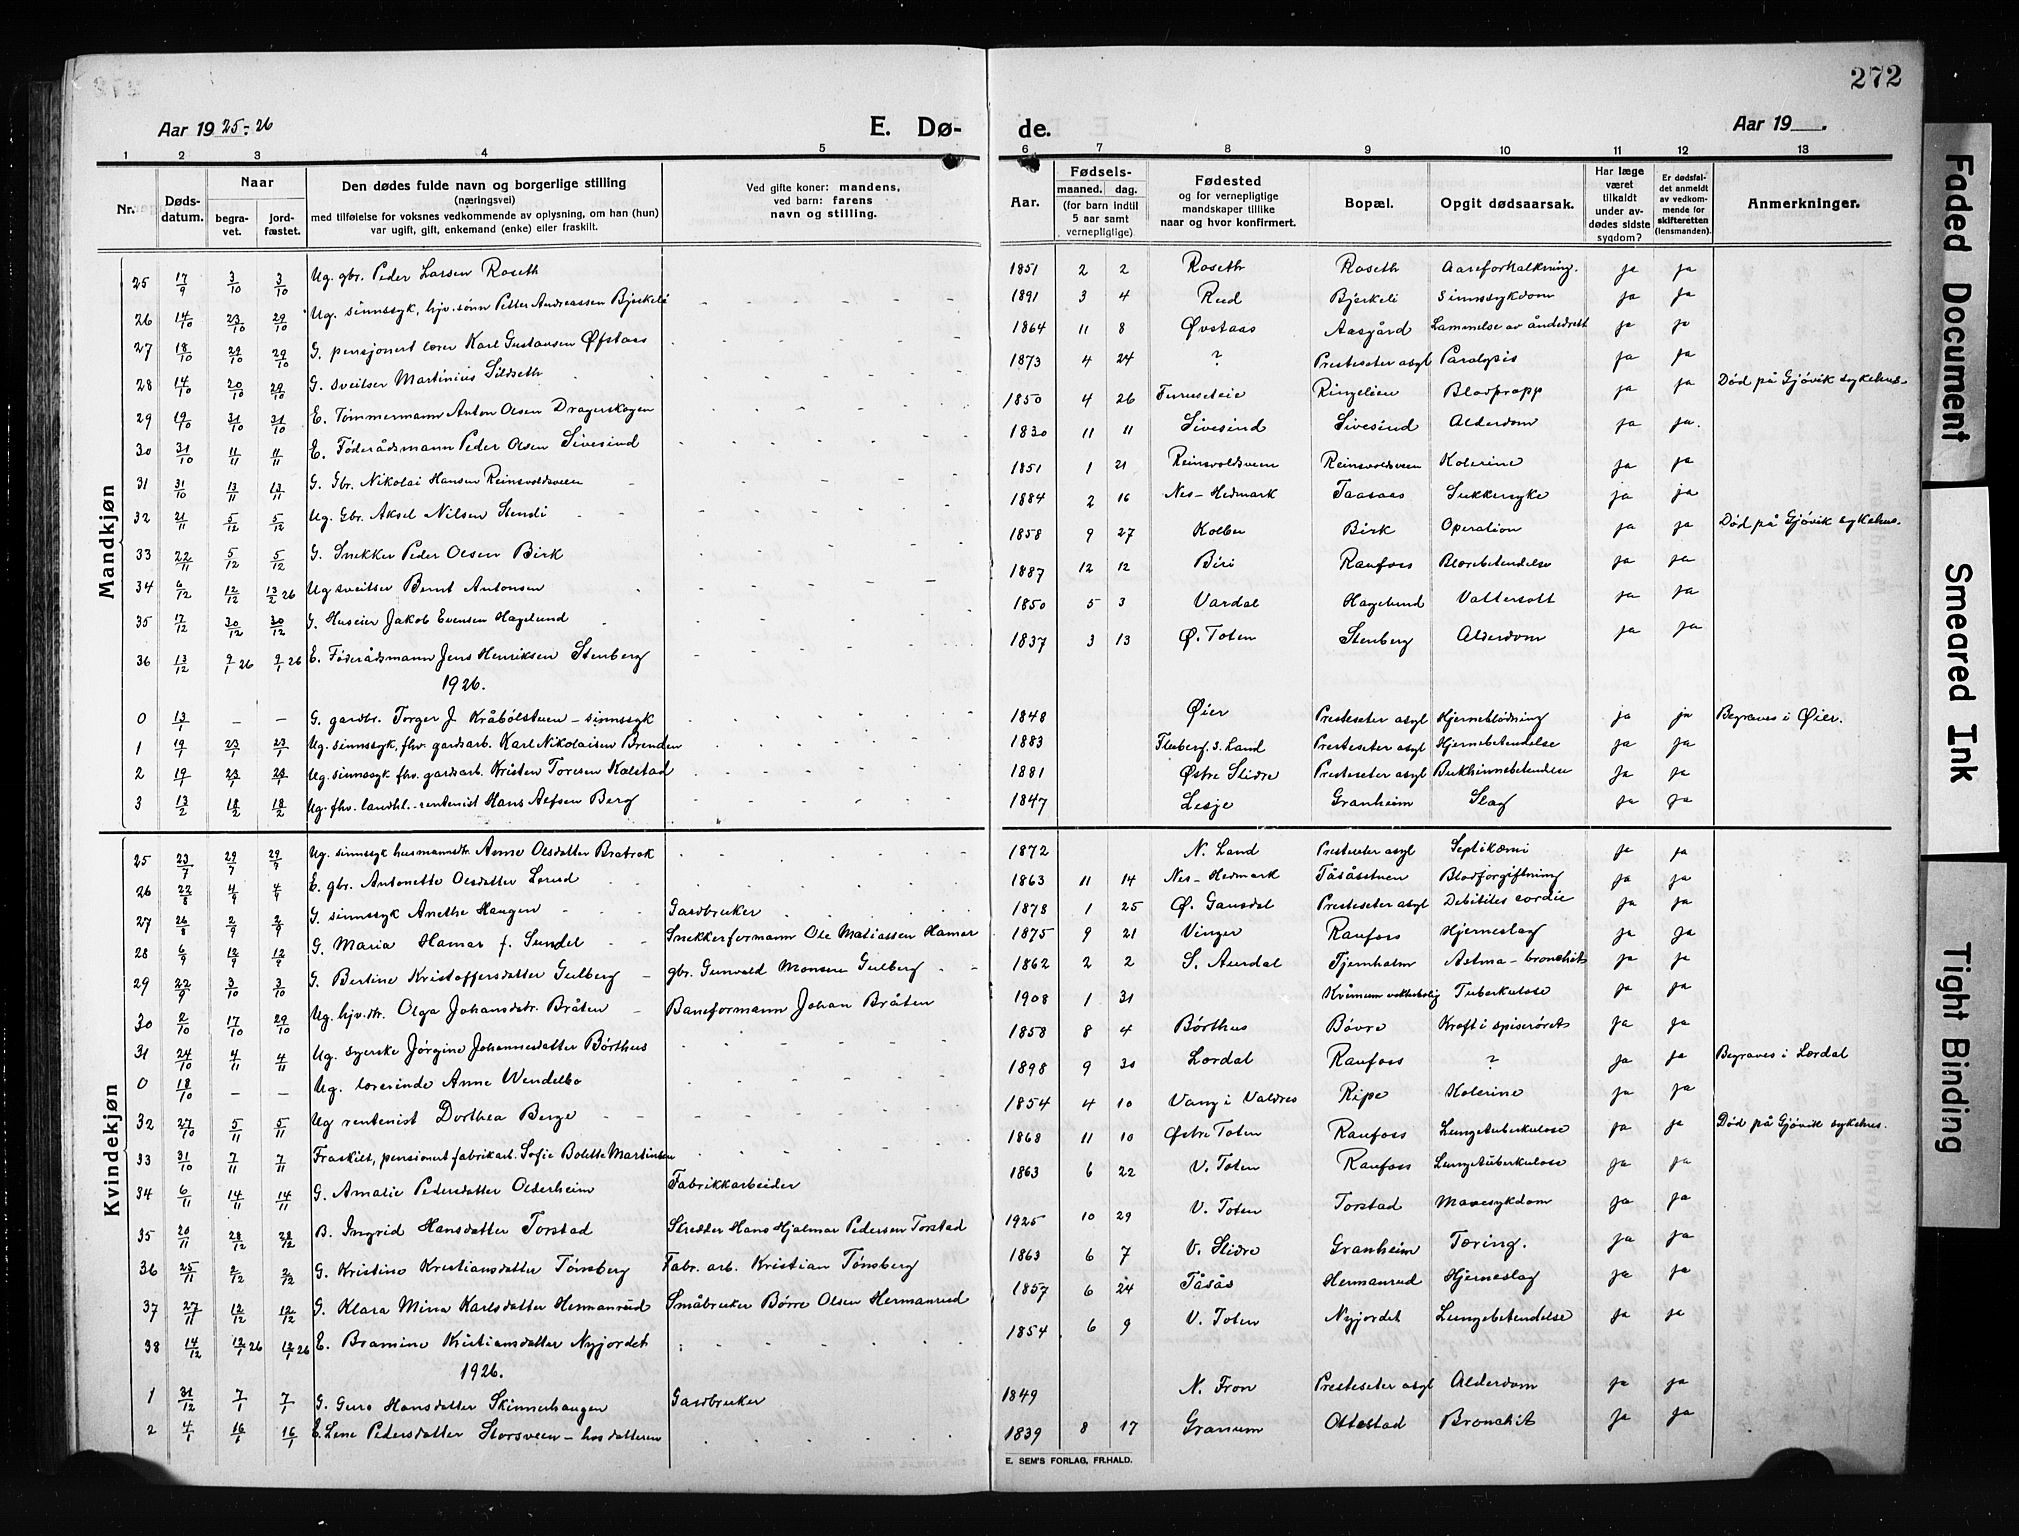 272
Aar 1925-26
E. Dø-
de.
Aar 19 .
1 2 3 4 5 6 7 8 9 10 11 12 13
Nr.
Døds-datum.
Naar
begra-vet.
jord-fæstet.
Den dødes fulde navn og borgerlige stilling
(næringsvei)
med tilføielse for voksnes vedkommende av oplysning, om han (hun)
var ugift, gift, enkemand (enke) eller fraskilt.
Ved gifte koner: mandens,
ved barn: farens
navn og stilling.
Aar.
Fødsels-
maaned. dag.
(for barn indtil
5 aar samt
vernepligtige)
Fødested
og for vernepligtige
mandskaper tillike
naar og hvor konfirmert.
Bopæl.
Opgit dødsaarsak.
Har læge
været
tilkaldt
under av-
dødes sidste
sygdom?
Er dødsfal-
det anmeldt
av vedkom-
mende for
skifteretten
(lensmanden).
Anmerkninger.
Mandkjøn
25 17/9 3/10 3/10 Ug. gbr. Peder Larsen Roseth 1851 2 2 Roseth Roseth Aareforkalkning. ja ja
26 14/10 23/10 29/10 Ug. sinnssyk, hjv. sønn Petter Andreassen Bjerkeli 1891 3 4 Rud Bjerkeli Sinnssykdom ja ja
27 18/10 29/10 29/10 G. pensjonert lærer Karl Gustavsen Øfstaas 1864 11 8 Øvstaas Aasgård Lammelse av åndedrett ja ja
28 14/10 20/10 29/10 G. sveitser Martinius Sildseth 1873 4 24 ? Presteseter asyl Paralysis ja ja
29 19/10 31/10 31/10 E. Tømmermann Anton Olsen Dragerskogen 1850 4 26 Furuseteie Ringelien Blodpropp ja ja Død på Gjøvik sykehus.
30 31/10 11/11 11/11 E. Føderådsmann Peder Olsen Sivesind 1830 11 11 Sivesind Sivesind Alderdom ja ja.
31 31/10 13/11 13/11 G. Gbr. Nikolai Hansen Reinsvoldsveen 1851 1 21 Reinsvoldsveen Reinsvoldsveen Kolerine ja ja
32 21/11 5/12 5/12 Ug. Gbr. Aksel Nilsen Stendi 1884 2 16 Nes-Hedmark Taasaas Sukkersyke ja ja
33 22/11 5/12 5/12 G. Snekker Peder Olsen Birk 1858 9 27 Kolbu Birk Operation ja ja Død på Gjøvik sykehus.
34 6/12 12/12 13/2 26 Ug sveitser Bernt Antonsen 1887 12 12 Biri Raufoss Blærebetendelse ja ja
35 17/12 30/12 30/12 G. Huseier Jakob Evensen Hagelund 1850 5 3 Vardal Hagelund Vattersott ja ja
36 13/12 9/1 26 9/1 26 E. Føderådsmann Jens Henriksen Stenberg 1837 3 13 Ø. Toten Stenberg Alderdom ja ja
1926.
0 13/1 – – G. gardbr. Torger J. Kråbølstuen – sinnssyk 1848 Øier Presteseter asyl Hjerneblødning ja ja Begraves i Øier.
1 19/1 23/1 23/1 Ug. sinnssyk, fhv. gardsarb. Karl Nikolaisen Brenden 1883 Fluberg. S. Land Presteseter asyl Hjernebetendelse ja ja
2 19/1 23/1 23/1 Ug. sinnssyk fhv. gardsarb. Kristen Toresen Kalstad 1881 Østre Slidre Presteseter asyl Bukhinnebetendelse ja ja
3 13/2 18/2 18/2 Ug. fhv. landhl.-rentenist Hans Berg 1847 Lesje Granheim Slag ja ja
Kvindekjøn
25 23/7 29/7 29/7 Ug. sinnssyk husmannsdtr. Anne Olsdatter Bratrok 1872 N. Land Presteseter asyl Septikæmi ja ja
26 22/8 4/9 4/9 E. gbr. Antonette Olsdatter Lørud 1863 11 14 Nes-Hedmark Tåsåsstuen Blodforgiftning ja ja
27 26/8 2/9 2/9 G. sinnssyk Anethe Haugen Gardbruker 1878 1 25 Ø. Gausdal Presteseter asyl Debilites cordie ja ja
28 6/9 12/9 12/9 G. Maria Hamar f. Sundet Snekkerformann Ole Matiassen Hamar 1875 9 21 Vinger Raufoss Hjerneslag ja ja
29 22/9 3/10 3/10 G. Bertine Kristoffersdatter Gulberg gbr. Gunvald Monsen Gulberg 1862 2 2 S. Aurdal Tjernholm Astma-bronchit ja ja
30 2/10 17/10 29/10 Ug. hjv. dtr. Olga Johansdtr. Bråten Baneformann Johan Bråten 1908 1 31 Kværnum vokterbolig Tuberkulose ja ja
31 24/10 4/11 4/11 Ug. syerske Jørgine Johannesdatter Børthus 1858 8 4 Børthus Bøvre Kræft i spiserøret ja ja
0 18/10 – – Ug. lærerinde Anne Wendelbo 1898 9 30 Lærdal Raufoss ? ja ja Begraves i Lærdal
32 27/10 5/11 5/11 Ug rentenist Dorthea Berge 1854 4 10 Vang i Valdres Ripe Kolerine ja ja
33 31/10 7/11 7/11 Fraskilt, pensjonert fabrikarb. Sofie Bolette Martinsen 1868 11 10 Østre Toten Raufoss Lungetuberkulose ja ja Død på Gjøvik sykehus.
34 6/11 14/11 14/11 G. Amalie Pedersdatter Olderheim Fabrikkarbeider 1863 6 22 V. Toten Raufoss Lungetuberkulose ja ja
35 20/11 28/12 28/12 B. Ingrid Hansdatter Torstad Skredder Hans Hjalmar Pedersen Torstad 1925 10 29 V. Toten Torstad Mavesykdom ja ja
36 25/11 2/12 2/12 G. Kristine Kristiansdatter Tønsberg Fabr. arb. Kristian Tønsberg 1863 6 7 V. Slidre Granheim Tæring. ja ja
37 27/11 12/12 12/12 G. Klara Mina Karlsdatter Hermanrud Småbruker Børre Olsen Hermanrud 1857 6 24 Tåsås Hermanrud Hjerneslag ja ja
38 14/12 12/1 26 12/1 26 E. Bramine Kristiansdatter Nyjordet 1854 6 9 V. Toten Nyjordet Lungebetendelse ja ja
1926.
1 31/12 7/1 7/1 G. Guro Hansdatter Skinnerhaugen Gardbruker 1849 N. Fron Presteseter asyl Alderdom ja ja
2 4/1 16/1 16/1 E. Lene Pedersdatter Storsveen – hos datteren 1839 8 17 Granum Ottestad Bronchit ja ja
E. SEM'S FORLAG, FR.HALD.
Faded Document
Smeared Ink
Tight Binding